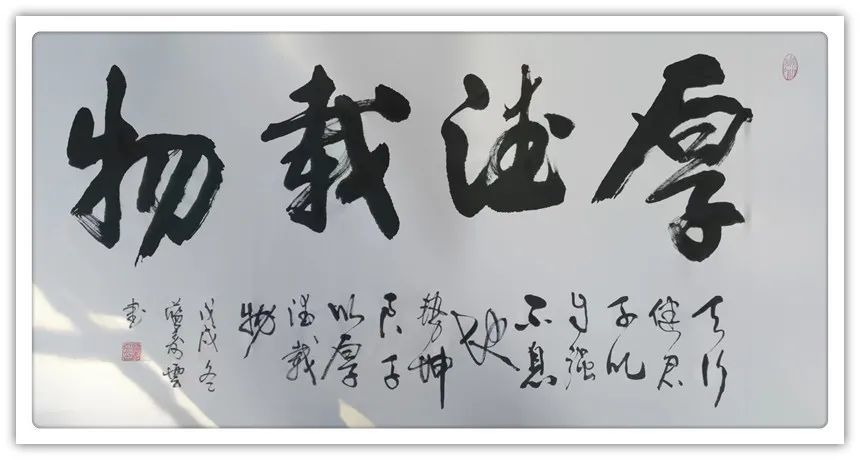 厚德載物
天行
健君
子以
自強
不息
地
势坤
君子
以厚
德載
物
戊戌冬
雲
书